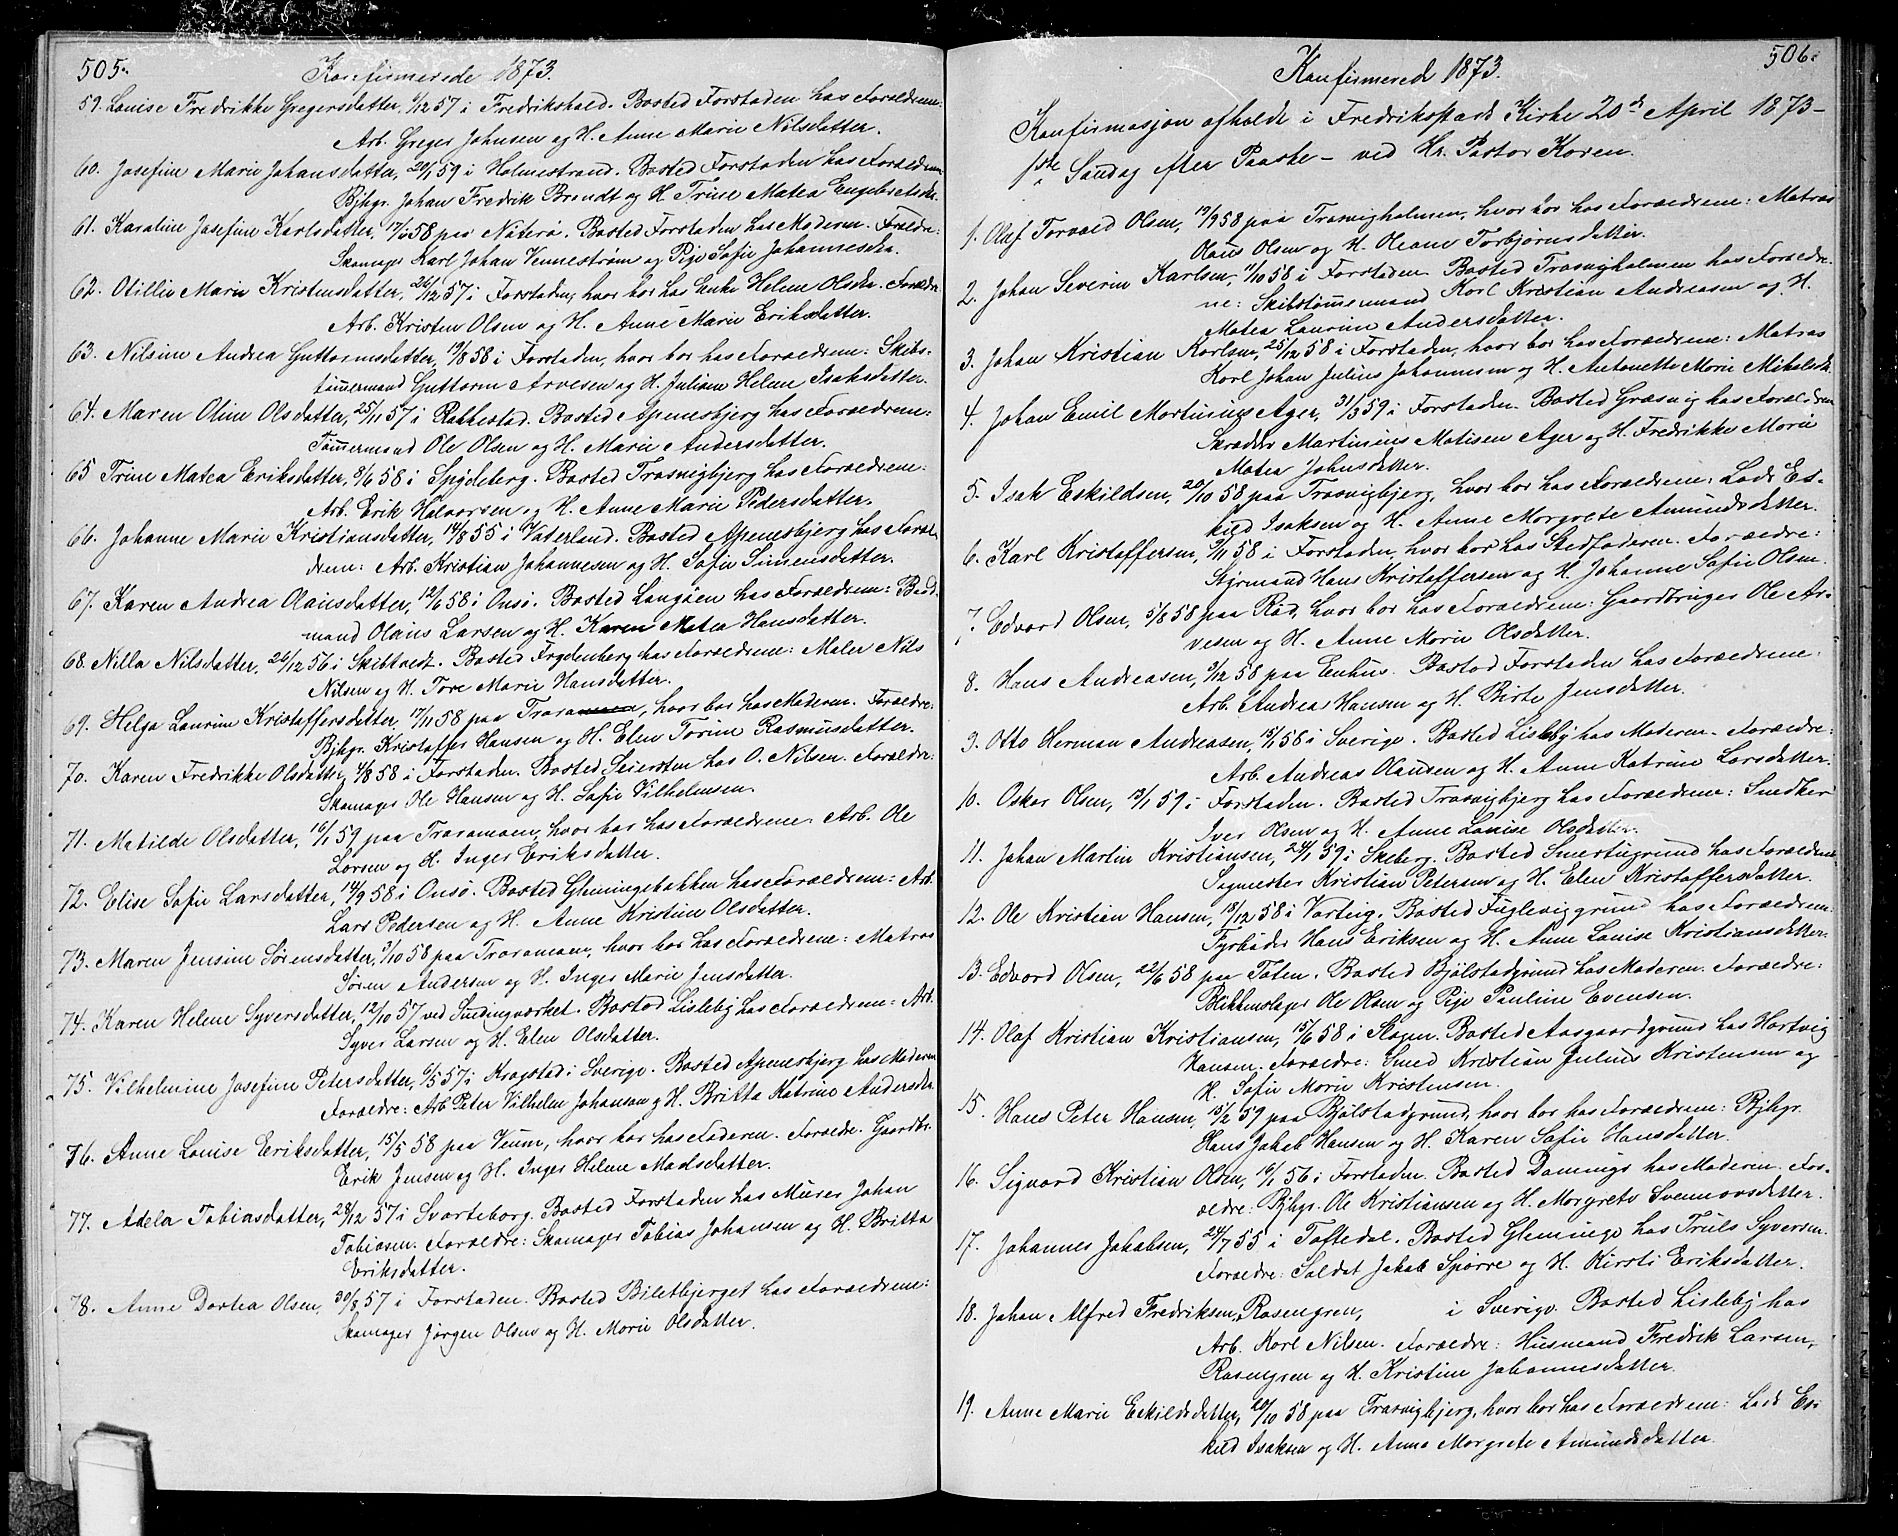 505.
Konfirmerede 1873.
59. Louise Fredrikke Gregersdatter, 6/12 57 i Fredrikshald. Bosted Forstaden hos Foraeldrene:
Arb. Greger Johnsen og H. Anne Marie Nilsdatter.
60. Josefine Marie Johansdatter, 20/1 59 i Holmestrand. Bosted Forstaden hos Foraeldrene
Bjhgr. Johan Fredrik Brendt og H Trine Matea Engebretsdtr.
61. Karoline Josefine Karlsdatter, 58 paa Nøterø. Bosted Forstaden hos Moderen. Foraeldre:
Skomager Karl Johan Vennestrøm og Pige Sofie Johannesdtr.
62. Otillie Marie Kristensdatter, 26/12 57 i Forstaden, hvor bor hos Enke Helene Olsdtr. Foraeldre
Arb. Kristen Olsen og H. Anne Marie Eriksdatter.
63. Nilsine Andrea Guttormsdatter, 19/8 58 i Forstaden, hvor bor hos Foraeldrene: Skibs-
tømmermand Guttorm Arvesen og H. Juliane Helene Isaksdatter.
64. Maren Oline Olsdatter, 25/11 57 i Rakkestad. Bosted Apenesbjerg hos Foraeldrene:
Tømmermand Ole Olsen og H. Marie Andersdatter.
65 Trine Matea Eriksdatter, 8/6 58 i Spydeberg. Bosted Trosvigbjerg hos Foraeldrene:
Arb. Erik Halvorsen og H. Anne Marie Pedersdatter.
66. Johanne Marie Kristiansdatter, 14/8 55 i Vaterland. Bosted Apenesbjerg hos Forael-
drene: Arb. Kristian Johannesen og H. Sofie Simensdatter.
67. Karen Andrea Olausdatter, 12/6 58 i Onsø. Bosted Langøen hos Foraeldrene: Baad-
mand Olaus Larsen og H. Karen Matea Hansdatter.
68. Nilla Nilsdatter, 26/12 56 i Skibtvedt. Bosted Frydenberg hos Foraeldrene: Maler Nils
Nilsen og H. Tove Marie Hansdatter.
69. Helga Laurine Kristoffersdatter 17/11 58 paa Traramoen, hvor bor hos Moderen. Foraeldre:
Bjhgr. Kristoffer Hansen og H. Elen Torine Rasmusdatter.
70. Karen Fredrikke Olsdatter, 4/8 58 i Forstaden. Bosted Seiersten hos O. Nilsen. Foraeldre:
Skomager Ole Hansen og H. Sofie Vilhelmsen.
71. Matilde Olsdatter, 16/1 59 paa Traramoen, hvor bor hos Foraeldrene Arb. Ole
Larsen og H. Inger Eriksdatter.
72. Elise Sofie Larsdatter, 14/9 58 i Onsø. Bosted Glemingebakken hos Foraeldrene: Arb.
Lars Pedersen og H. Anne Kristine Olsdatter.
73. Maren Jensine Sørensdatter, 3/10 58 paa Traramoen, hvor bor hos Foraeldrene: Matros
Søren Andersen og H. Inger Marie Jensdatter.
74. Karen Helene Syversdatter, 12/10 57 ved Smedingværket. Bosted Lisleby hos Foraeldrene: Arb.
Syver Larsen og H. Elen Olsdatter.
75. Vilhelmine Josefine Petersdatter, 6/5 57 i Krogstad i Sverige. Bosted Apenesbjerg hos Moderen
Foraeldre: Arb Peter Vilhelm Johanson og H. Britta Katrine Andersdtr
76. Anne Louise Eriksdatter, 15/5 58 paa Veum, hvor bor hos Faderen. Foraeldre. Gaardbr.
Erik Jensen og H. Inger Helene Madsdatter.
77. Adela Tobiasdatter, 28/12 57 i Svarteborg. Bosted Forstaden hos Murer Johan
Tobiasen. Foraeldre: Skomager Tobias Johansen og H. Britta
Eriksdatter.
78. Anne Dortea Olsen, 30/8 57 i Forstaden. Bosted Biletbjerget hos Foraeldrene:
Skomager Jørgen Olsen og H. Marie Olsdatter.
506.
Konfirmered 1873.
Konfirmasjon afholdt i Fredrikstads Kirke 20de April 1873-
1ste Søndag efter Paaske - ved Hr. Pastor Koren.
1. Olaf Torvald Olsen, 19/9 58 paa Trosvigholmen, hvor bor hos Foraeldrene: Matros
Olaus Olsen og H. Oleane Torbjørnsdatter.
2. Johan Severin Karlsen, 7/10 58 i Forstaden Bosted Trosvigholmen hos Foraeldre-
ne: Skibstømmermand Karl Kristian Andreasen og H.
Matea Laurine Andersdatter.
3. Johan Kristian Karlsen, 25/12 58 i Forstaden, hvor bor hos Foraeldrene: Matros
Karl Johan Julius Johannesen og H. Antonette Marie Mikalsdtr.
4. Johan Emil Martinius Ager, 31/3 59 i Forstaden. Bosted Græsvig hos Foraeldrene
Skrædder Martinius Matisen Ager og H. Fredrikke Marie
Matea Johnsdatter.
5. Isak Eskildsen, 20/10 58 paa Trosvigbjerg, hvor bor hos Foraeldrene: Lods Es-
kild Isaksen og H. Anne Morgrete Amundsdatter.
6. Karl Kristoffersen, 9/11 58 i Forstaden, hvor bor hos Stedfaderen. Foraeldre:
Styrmand Hans Kristoffersen og H. Johanne Sofie Olsen.
7. Edvard Olsen, 5/8 58 paa Rød, hvor bor hos Foraeldrene: Gaardbruger Ole Ar-
vesen og H. Anne Marie Olsdatter.
8. Hans Andreasen, 9/12 58 paa Enhus. Bosted Forstaden hos Foraeldrene:
Arb. Andreas Hansen og H. Birte Jensdatter.
9. Otto Herman Andreasen, 15/1 58 i Sverige. Bosted Lisleby hos Moderen. Foraeldre:
Arb. Andreas Olausen og H. Anne Katrine Larsdatter.
10. Oskar Olsen, 13/1 59 i Forstaden. Bosted Trosvigbjerg hos Foraeldrene: Snedker
Iver Olsen og H. Anne Louise Olsdatter.
11. Johan Martin Kristiansen, 24/1 59 i Skeberg. Bosted Smertugrund hos Foraeldrene
Sagmester Kristian Petersen og H. Elen Kristoffersdatter.
12. Ole Kristian Hansen, 18/12 58 i Varteig. Bosted Fuglevigrund hos Foraeldrene:
Fyrbøder Hans Eriksen og H. Anne Louise Kristiansdatter.
13. Edvard Olsen, 22/6 58 paa Toten. Bosted Bjølstadgrund hos Moderen. Foraeldre:
Blikkenslager Ole Olsen og Pige Pauline Evensen.
14. Olaf Kristian Kristiansen, 15/6 58 i Skogen. Bosted Aasgaardgrund hos Hartvig
Hansen. Foraeldre: Smed Kristian Julius Kristensen og
H. Sofie Marie Kristensen.
15. Hans Peter Hansen, 15/2 59 paa Bjølstadgrund, hvor bor hos Foraeldrene: Bjhgr.
Hans Jakob Hansen og H. Karen Sofie Hansdatter.
16. Sigvard Kristian Olsen, 16/1 56 i Forstaden. Bosted Damings hos Moderen. For-
aeldre: Bjhgr. Ole Kristiansen og H. Morgrete Svennovsdatter.
17. Johannes Jakobsen, 24/7 55 i Toftedal. Bosted Gleminge hos Truls Syversen.
Foraeldre: Soldat Jakob Spørre og H. Kirsti Eriksdatter.
18. Johan Alfred Fredriksen Rosengren, i Sverige. Bosted Lisleby hos
Arb. Karl Nilsen. Foraeldre: Husmand Fredrik Larsen
Rosengren og H. Kristine Johannesdatter.
19. Anne Marie Eskildsdatter, 20/10 58 paa Trosvigbjerg, hvor bor hos Foraeldrene: Lods Es-
kild Isaksen og H. Anne Morgrete Amundsdatter.